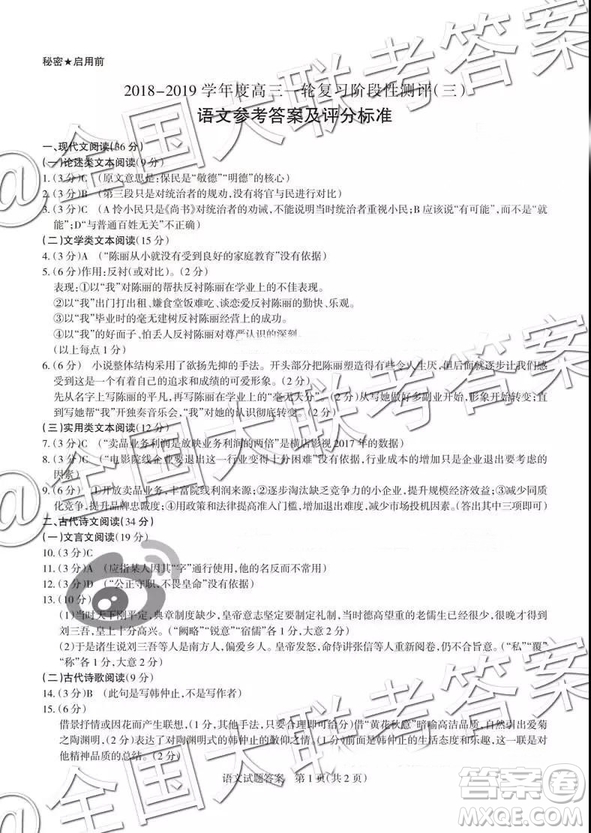 秘密★启用前
2018-2019学年度高三一轮复习阶段性测评(三)
语文参考答案及评分标准
一、现代文阅读(36分)
(一)论述类文本阅读(9分)
1.(3分)C (原文意思是:保民是“敬德”“明德”的核心)
2.(3分)B (第三段只是对统治者的规劝,没有官与民的分别)
3.(3分)C (A怜小民只是《尚书》对统治者的劝诫,不能说明当时统治者重视小民;B应该说“有可能”,而不
是“就能”;D“与普通百姓无关”不对)
(二)文学类文本阅读(15分)
4.(3分)A (“陈丽从小就没有受到良好的家庭教育”没有依据)
5.(6分)作用:反衬(或对比)。(2分)
表现:①以“我”对陈丽的帮助反衬陈丽在学业上的不佳表现。
②以“我”出门打出租、嫌食堂饭难吃、谈恋爱反衬陈丽的勤快、乐观。
③以“我”毕业时的毫无建树反衬陈丽经营上的成功。
④以“我”的好面子、怕丢人反衬陈丽对尊严认识的深刻。
(以上每点1分)
6.(6分) 小说整体结构采用了欲扬先抑的手法。开头部分把陈丽塑造得有些令人生厌,但后面逐步让我们感
受到这是一个自尊自强的可爱形象。(2分)
先从名字上写陈丽的平凡,再写陈丽在学业上的“毫无天分”(2分)从写她做好多副业开始,形象开始
丰满,直至写到她开独奏音乐会,成绩的突出与开头形成强烈反差。(2分)
(三)实用类文本阅读(12分)
7.(3分)C (“卖品业务利润是放映业务利润的两倍”是横店影视2017年的数据)
8.(3分)C (“电影院线企业变得十分困难”没有依据,行业成熟只是对进入者的要求更高,是促进行业进步的
因素)
9.(6分) ①开放卖品业务,丰富院线利润来源。②适当淘汰缺乏竞争力的小企业,提升行业集中度。③坚持
提升品牌忠诚度。④用政策和法律提高准入门槛,增大市场投机因素。(答出其中三项即可)
二、古代诗文阅读(34分)
(一)文言文阅读(19分)
10.(3分)C
11.(3分)A (应指某人因其“字”通行使用,他的名反而不常用)
12.(3分)D (“公正守职,不畏皇命”没有依据)
13.(10分)
(1)当时天下刚平定,典章制度缺少,皇帝意志坚定要制定礼制,当时德高望重的老儒生已很少,找到
刘三吾,皇上十分高兴。(“阙略”“锐意”“宿儒”各1分,大意2分)
(2)于是许多议论纷纷,说三吾等人偏爱乡党。皇帝发怒,命侍讲张信等人重新审阅。(“私”“覆”
“称”各1分,大意2分)
(二)古代诗歌阅读(9分)
14.(3分)B (此句是写韩仲止,不是写自己)
15.(6分)
借景抒情或因花而产生联想,须答出其中一点才得分。(1分)借“黄花秋意”暗喻高洁品质,引出爱菊
之陶渊明,(2分)表达了对陶渊明式的韩仲止的闲居生活状态的同感和乐趣,(2分)进而表达了对
他精神品质的赞赏。(1分)
语文试题答案 第1页(共2页)
@全国大联考答案
答案圈